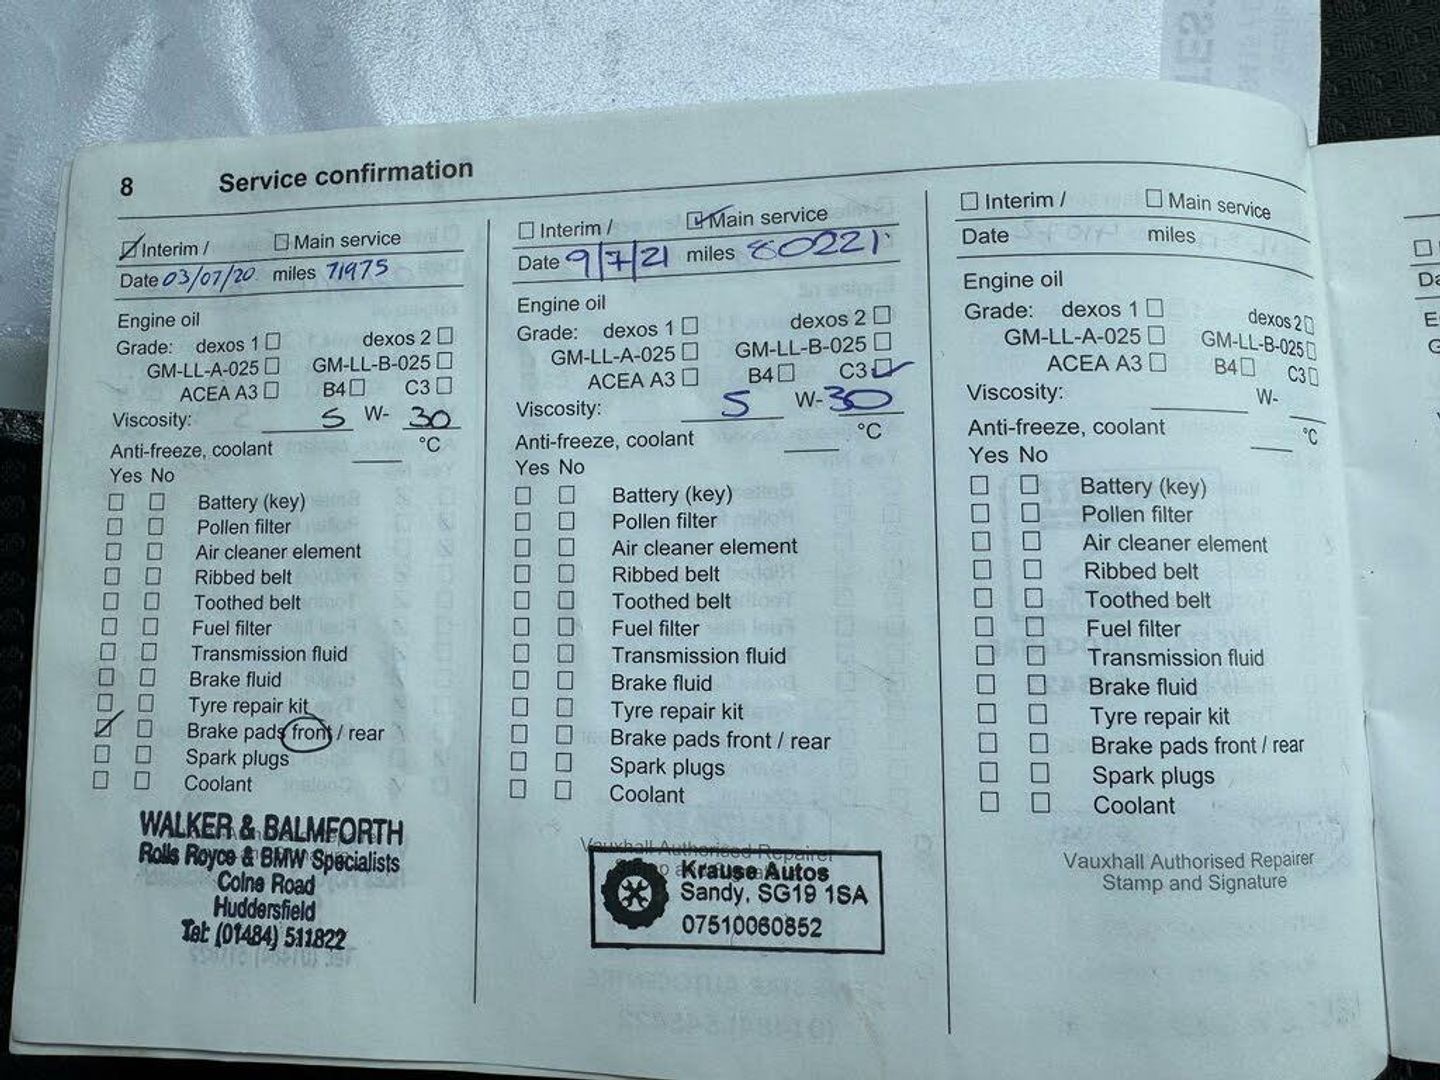 8 Service confirmation
Interim / Main service
Date 03/07/20 miles 71975
Engine oil
Grade: dexos 1 dexos 2
GM-LL-A-025 GM-LL-B-025
ACEA A3 B4 C3
Viscosity: 5 W- 30
Anti-freeze, coolant °C
Yes No
Battery (key)
Pollen filter
Air cleaner element
Ribbed belt
Toothed belt
Fuel filter
Transmission fluid
Brake fluid
Tyre repair kit
Brake pads front / rear
Spark plugs
Coolant
WALKER & BALMFORTH
Rolls Royce & BMW Specialists
Colne Road
Huddersfield
Tel: (01484) 511822
Interim / Main service
Date 9/7/21 miles 80221
Engine oil
Grade: dexos 1 dexos 2
GM-LL-A-025 GM-LL-B-025
ACEA A3 B4 C3
Viscosity: 5 W- 30
Anti-freeze, coolant °C
Yes No
Battery (key)
Pollen filter
Air cleaner element
Ribbed belt
Toothed belt
Fuel filter
Transmission fluid
Brake fluid
Tyre repair kit
Brake pads front / rear
Spark plugs
Coolant
Vauxhall Authorised Repairer
Krause Autos
Sandy, SG19 1SA
07510060852
Interim / Main service
Date miles
Engine oil
Grade: dexos 1 dexos 2
GM-LL-A-025 GM-LL-B-025
ACEA A3 B4 C3
Viscosity: W-
Anti-freeze, coolant °C
Yes No
Battery (key)
Pollen filter
Air cleaner element
Ribbed belt
Toothed belt
Fuel filter
Transmission fluid
Brake fluid
Tyre repair kit
Brake pads front / rear
Spark plugs
Coolant
Vauxhall Authorised Repairer
Stamp and Signature